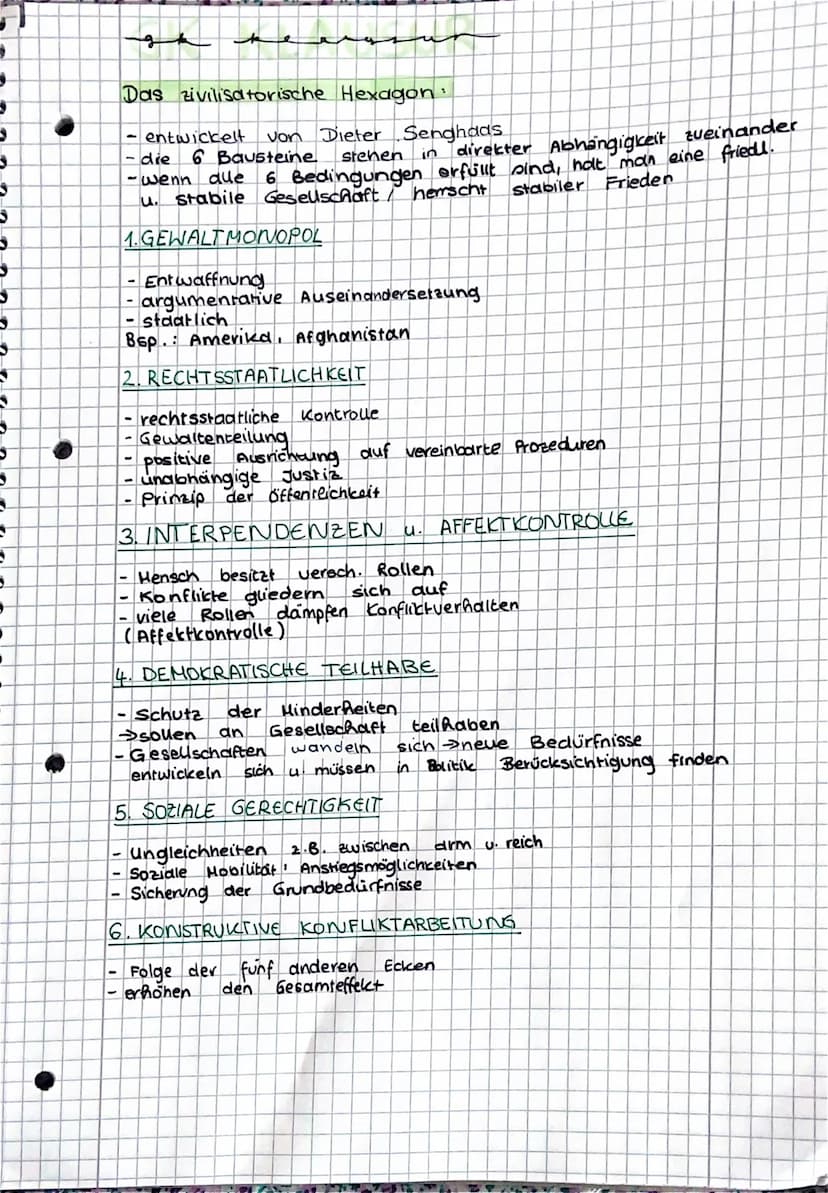 GK KLAUSUR
gk klausur
Das zivilisatorische Hexagon:
- entwickelt von Dieter Senghaas
- die 6 Bausteine stehen in direkter Abhängigkeit zueinander
- wenn alle 6 Bedingungen erfüllt sind, hat man eine friedl.
u. stabile Gesellschaft / herrscht stabiler Frieden
1. GEWALTMONOPOL
- Entwaffnung
- argumentative Auseinandersetzung
- staatlich
Bsp.: Amerika, Afghanistan
2. RECHTSSTAATLICHKEIT
- rechtsstaatliche Kontrolle
- Gewaltenteilung
- positive Ausrichtung auf vereinbarte Prozeduren
- unabhängige Justiz
- Prinzip der Öffentlichkeit
3. INTERPENDENZEN u. AFFEKTKONTROLLE
- Mensch besitzt versch. Rollen
- Konflikte gliedern sich auf
- viele Rollen dämpfen Konfliktverhalten
(Affektkontrolle)
4. DEMOKRATISCHE TEILHABE
- Schutz der Minderheiten
→ sollen an Gesellschaft teilhaben
- Gesellschaften wandeln sich → neue Bedürfnisse
entwickeln sich u. müssen in Politik Berücksichtigung finden
5. SOZIALE GERECHTIGKEIT
- Ungleichheiten z.B. zwischen arm u. reich
- Soziale Mobilität, Anstiegsmöglichkeiten
- Sicherung der Grundbedürfnisse
6. KONSTRUKTIVE KONFLIKTARBEITUNG
- Folge der fünf anderen Ecken
- erhöhen den Gesamteffekt